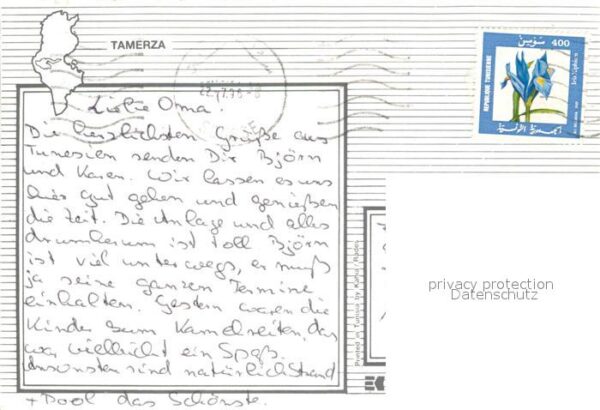 TAMERZA
400
REPUBLIQUE TUNISIENNE
Liebe Oma
Die herzlichsten Grüße aus
Tunesien senden Dir Björn
und Karen. Wir lassen es uns
hier gut gehen und genießen
die Zeit. Die Anlage und alles
drumherum ist toll Björn
ist viel unterwegs, er muß
ja seine ganzen Termine
einhalten. Gestern waren die
Kinder zum Kamelreiten, das
war vielleicht ein Spaß.
Ansonsten sind natürlich Strand
+ Pool das Schönste.
privacy protection
Datenschutz
Printed in Tunisia by